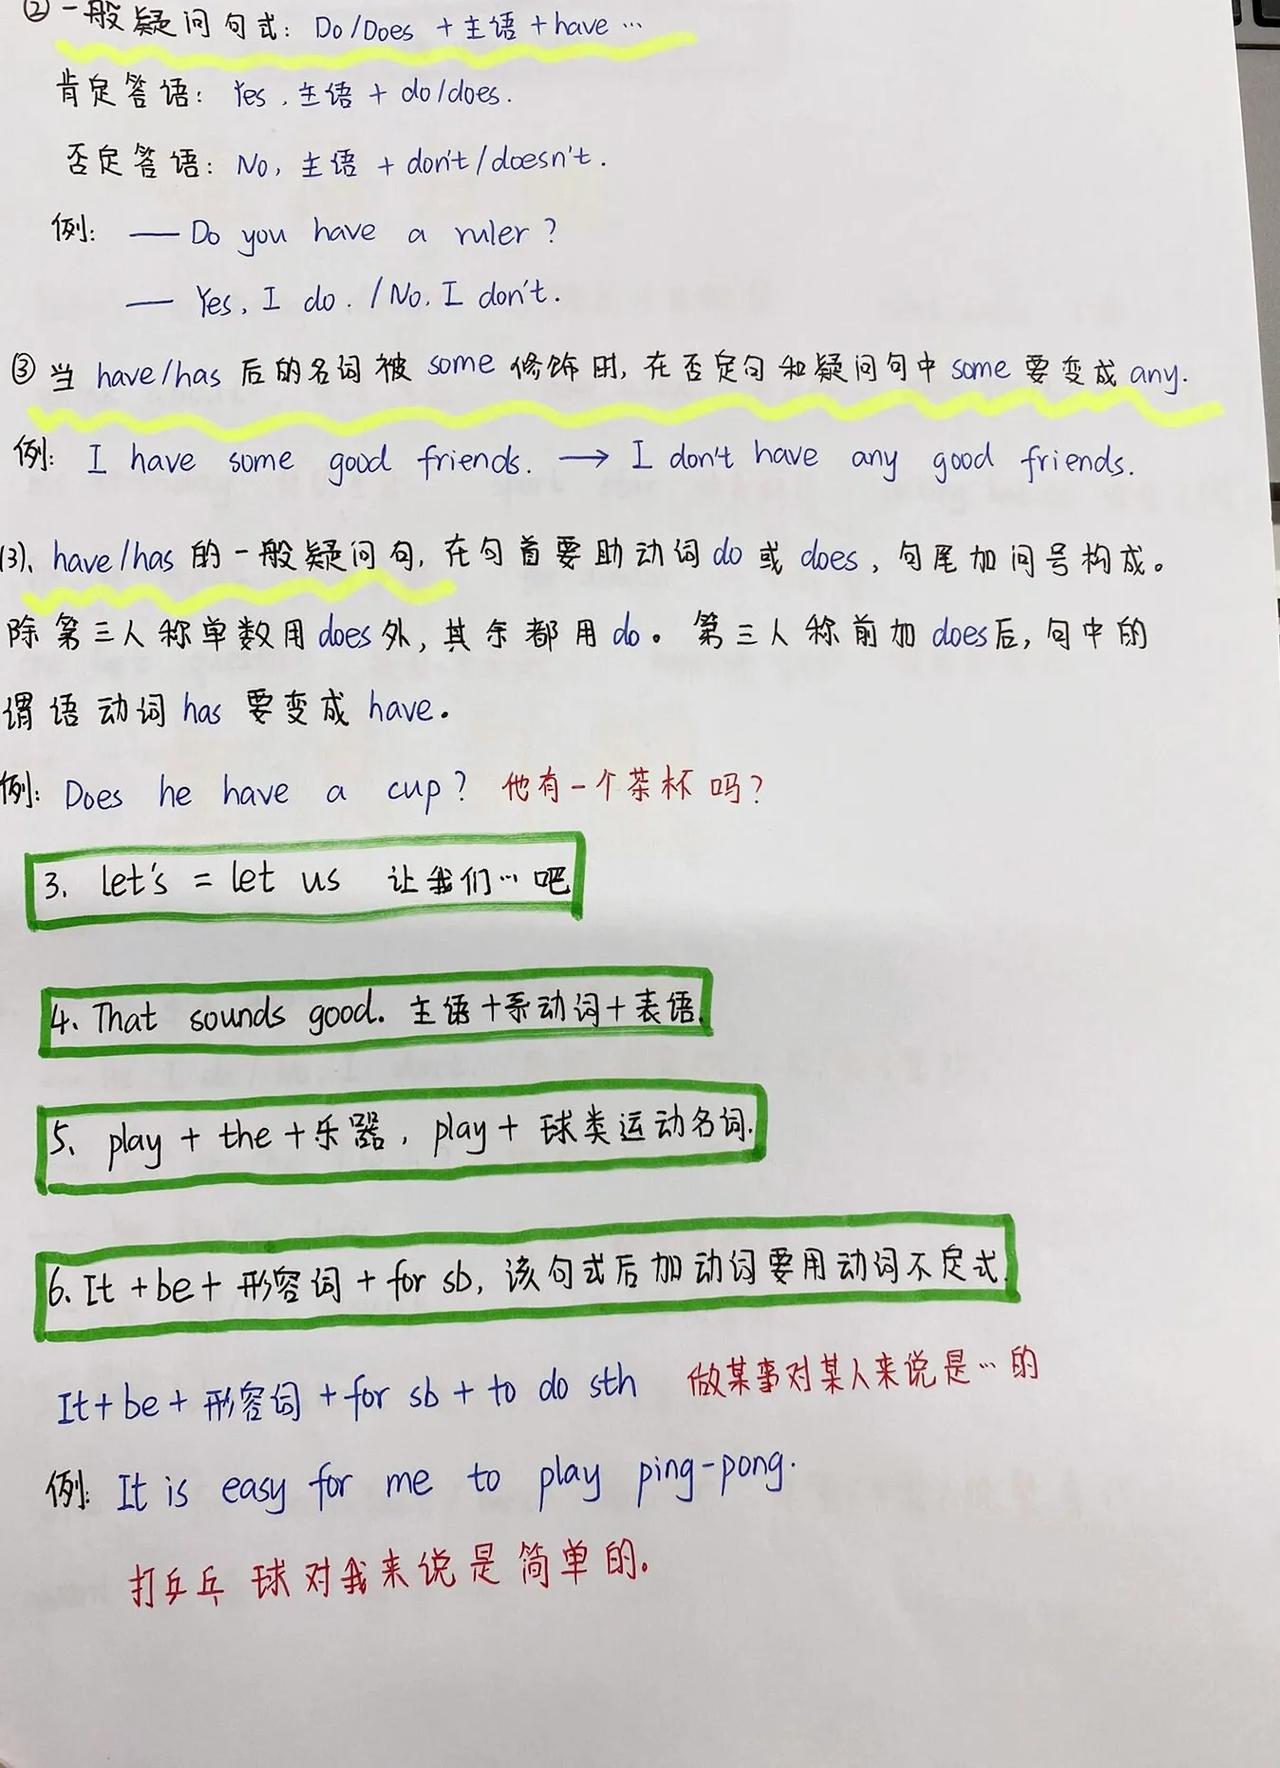 ② 一般疑问句式: Do/Does + 主语 + have …
肯定答语: Yes, 主语 + do/does.
否定答语: No, 主语 + don't/doesn't.
例: — Do you have a ruler?
— Yes, I do. / No, I don't.
③ 当 have/has 后的名词被 some 修饰时, 在否定句和疑问句中 some 要变成 any.
例: I have some good friends. → I don't have any good friends.
(3)、have/has 的一般疑问句, 在句首要助动词 do 或 does, 句尾加问号构成。
除第三人称单数用 does 外, 其余都用 do。第三人称前加 does 后, 句中的
谓语动词 has 要变成 have.
例: Does he have a cup? 他有一个茶杯吗?
3. let's = let us 让我们…吧
4、That sounds good. 主语+系动词+表语.
5、play + the + 乐器, play + 球类运动名词.
6、It + be + 形容词 + for sb, 该句式后加动词要用动词不定式.
It + be + 形容词 + for sb + to do sth 做某事对某人来说是…的
例: It is easy for me to play ping-pong.
打乒乓球对我来说是简单的.